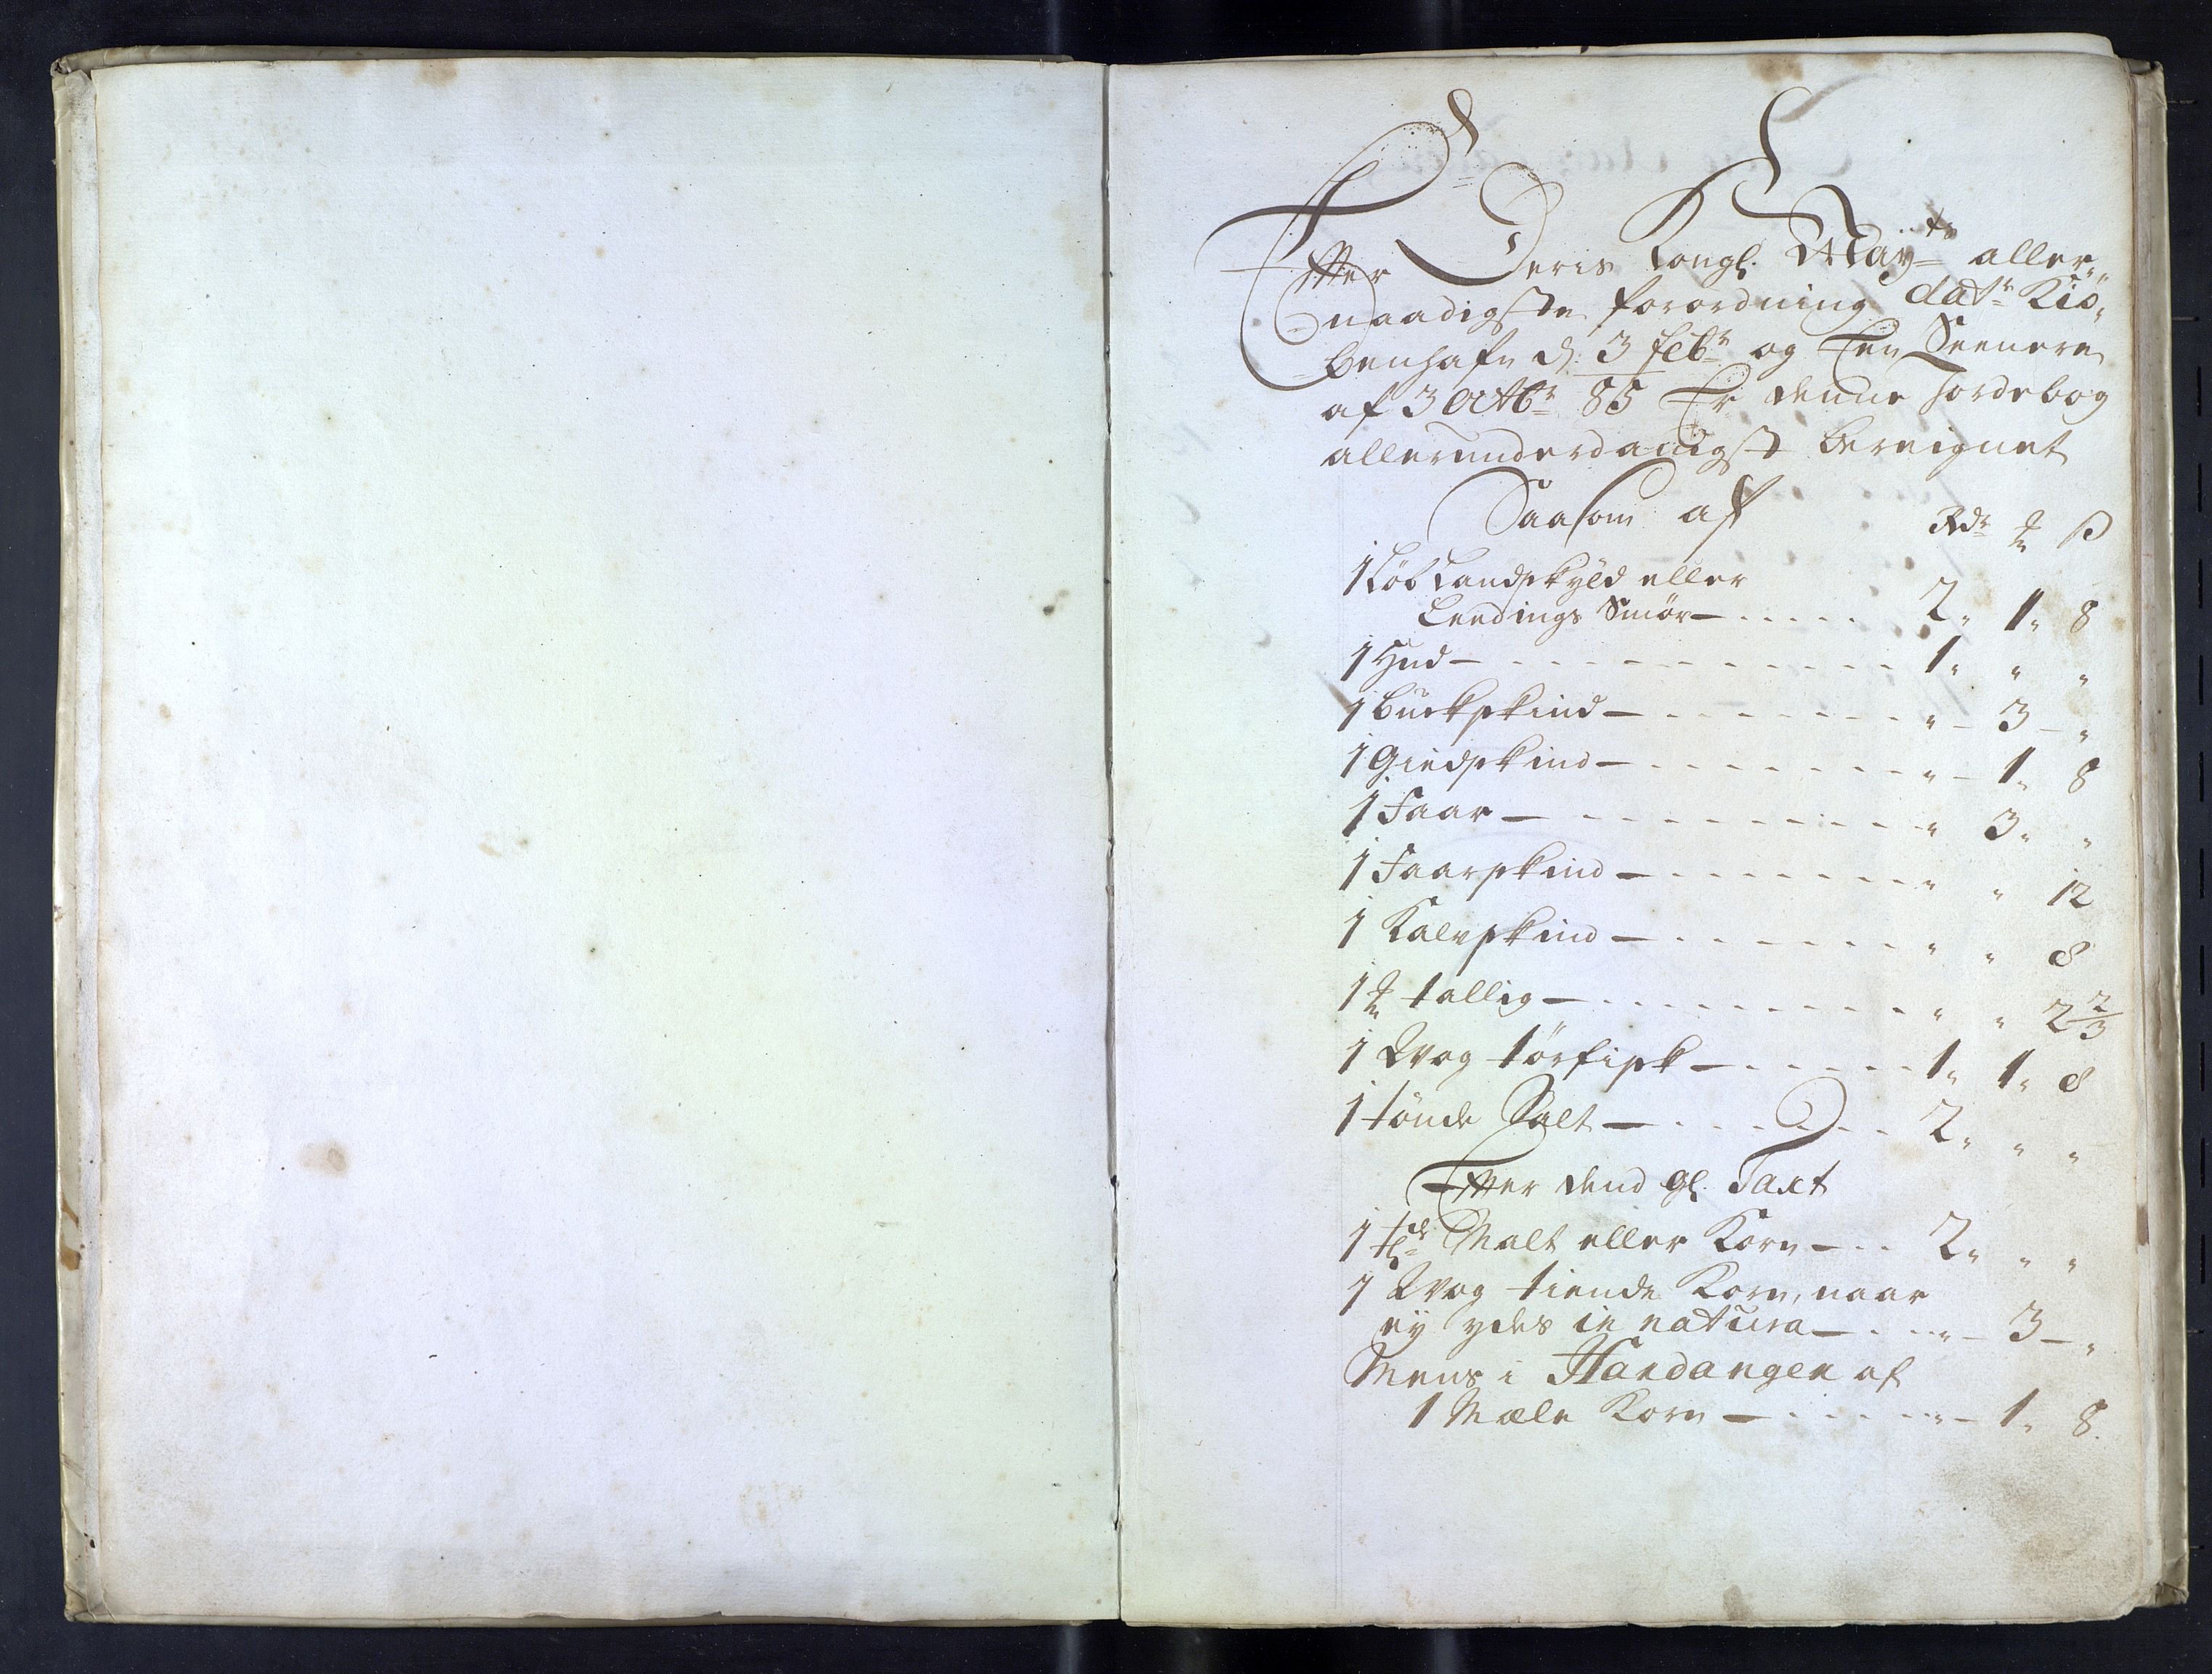 Efter Deris Kongl. Mayts aller„
naadigste forordning datr Kiö„
benhafn d: 3 Febr og Een Seenere
af 3 Octbr 85 Er denne Jordebog
allerunderdanigst bereignet
Saasom af Rdr ₥ ß
1 Löb Landskyld eller
Leedings Smör — . . . . . 2„ 1„ 8
1 Hud — . . . . . 1„ „ „
1 Buckskind — . . . . . „ – 3 – „
1 Giedskind — . . . . . „ – 1„ 8
1 Faar — . . . . . „ 3„ „
1 Faarskind — . . . . . „ „ 12
1 Kalvskind — . . . . . „ „ 8
1 ₥ tallig — . . . . . „ „ 2 2/3
1 Wog törfisk — . . . . . 1„ 1„ 8
1 tönde Salt — . . . . . 2„ „ „
Efter dend gl. Taxt
1 tde Malt eller Korn — . . 2„ „ „
1 Wog tiende Korn, naar
ey ydes in natura — . . . „ – 3 – „
Mens i Hardanger af
1 Mæle Korn — . . . . . „ – 1„ 8.